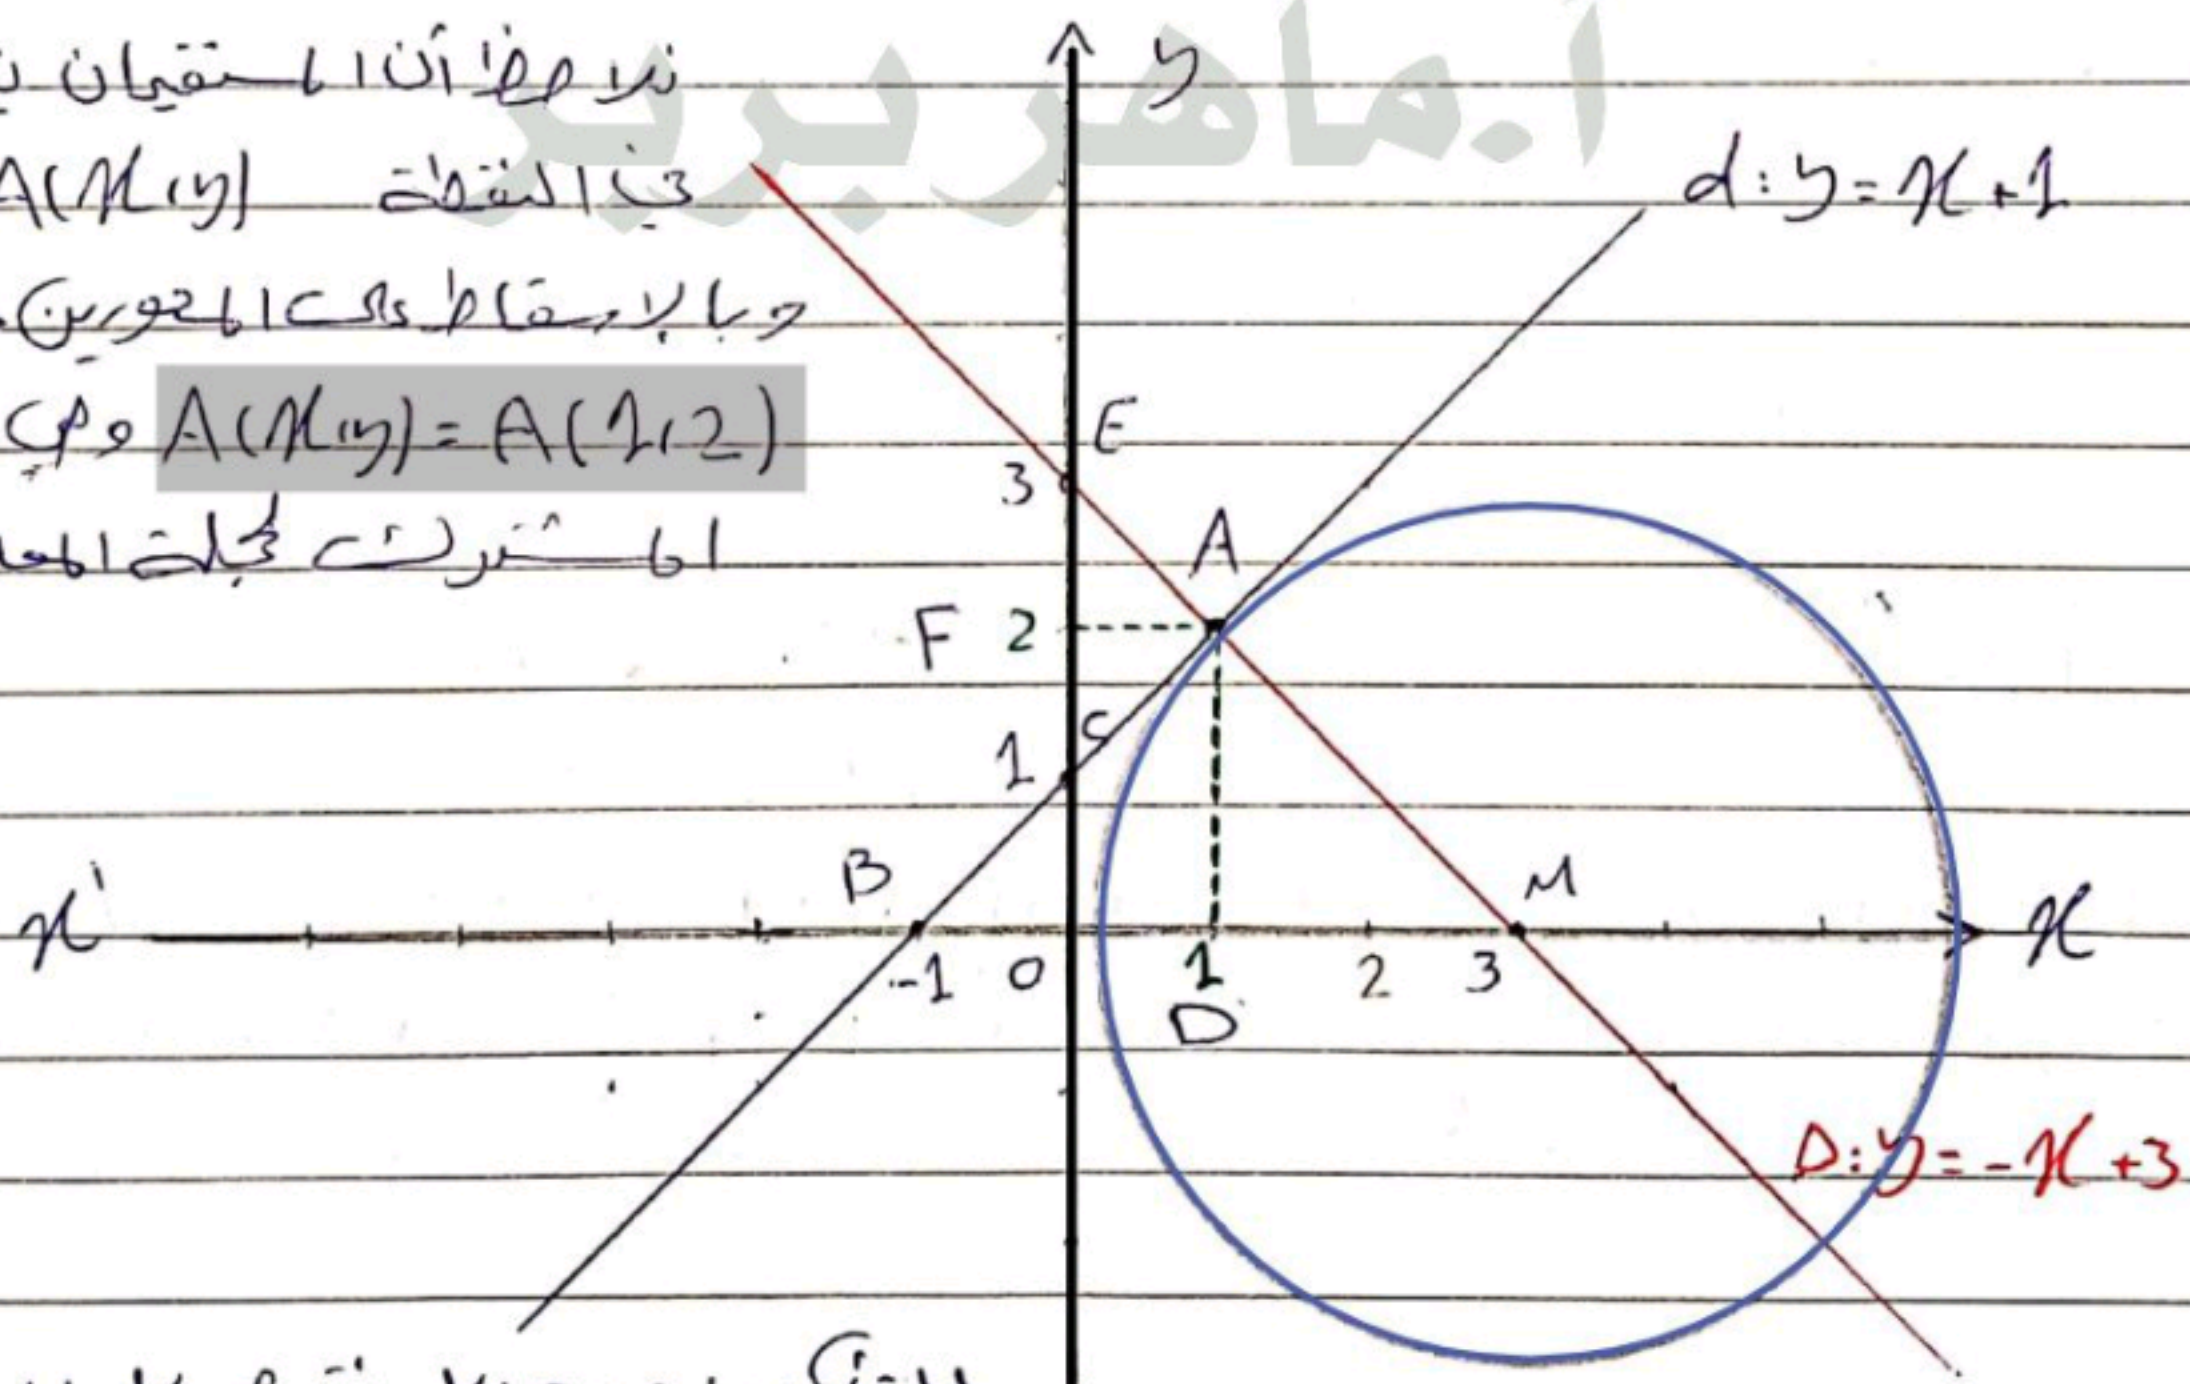 أ.ماهر بربر
y
نلاحظ أن المستقيمان
في النقطة A(x,y)
d: y = x + 1
وبالإسقاط على المحورين
A(x,y) = A(1,2) وهي
المشترك لجملة المعا
E
3
A
F 2
C
1
B
M
x'
x
-1 0 1 2 3
D
D: y = -x + 3